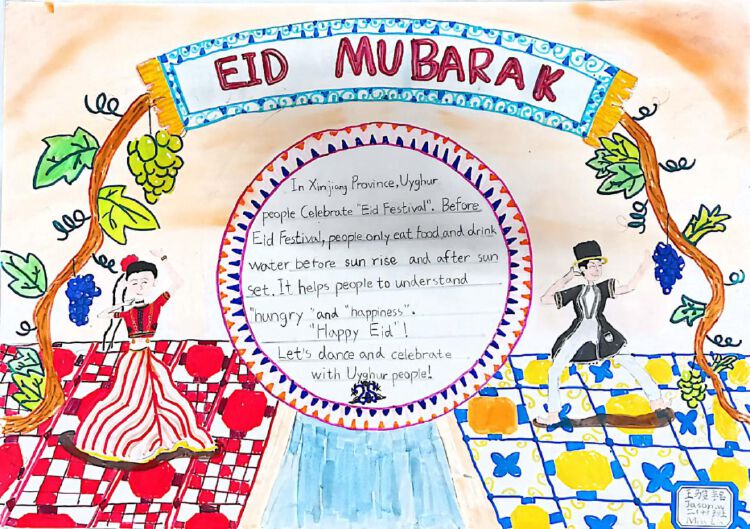 EID MUBARAK
In Xinjiang Province, Uyghur
people Celebrate "Eid Festival". Before
Eid Festival, people only eat food and drink
water before sun rise and after sun
set. It helps people to understand
"hungry" and "happiness".
"Happy Eid"!
Let's dance and celebrate
with Uyghur people!